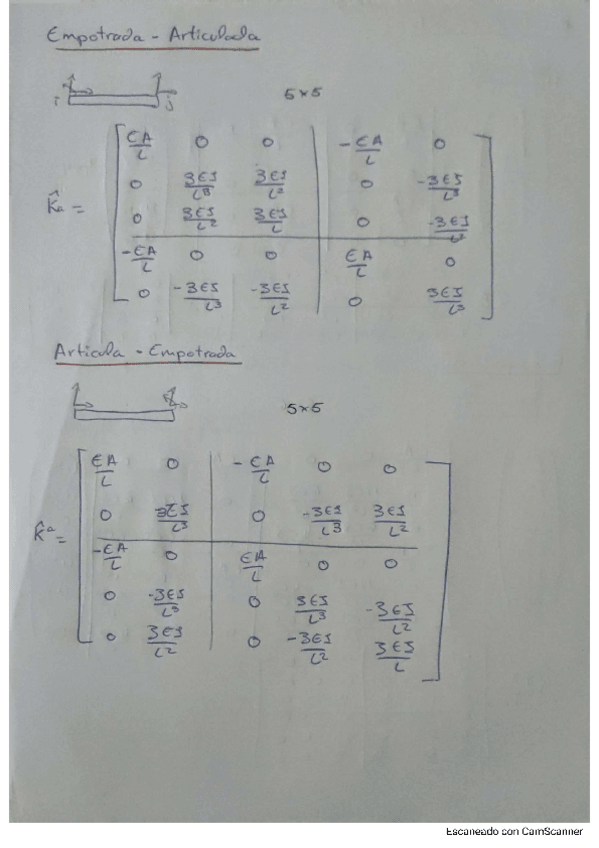 Empotrada - Articulada
i j 5x5
K̂a =
EA/L 0 0 -EA/L 0
0 3EJ/L³ 3EJ/L² 0 -3EJ/L³
0 3EJ/L² 3EJ/L 0 -3EJ/L²
-EA/L 0 0 EA/L 0
0 -3EJ/L³ -3EJ/L² 0 3EJ/L³
Articula - Empotrada
5x5
K̂a =
EA/L 0 -EA/L 0 0
0 3EJ/L³ 0 -3EJ/L³ 3EJ/L²
-EA/L 0 EA/L 0 0
0 -3EJ/L³ 0 3EJ/L³ -3EJ/L²
0 3EJ/L² 0 -3EJ/L² 3EJ/L
Escaneado con CamScanner